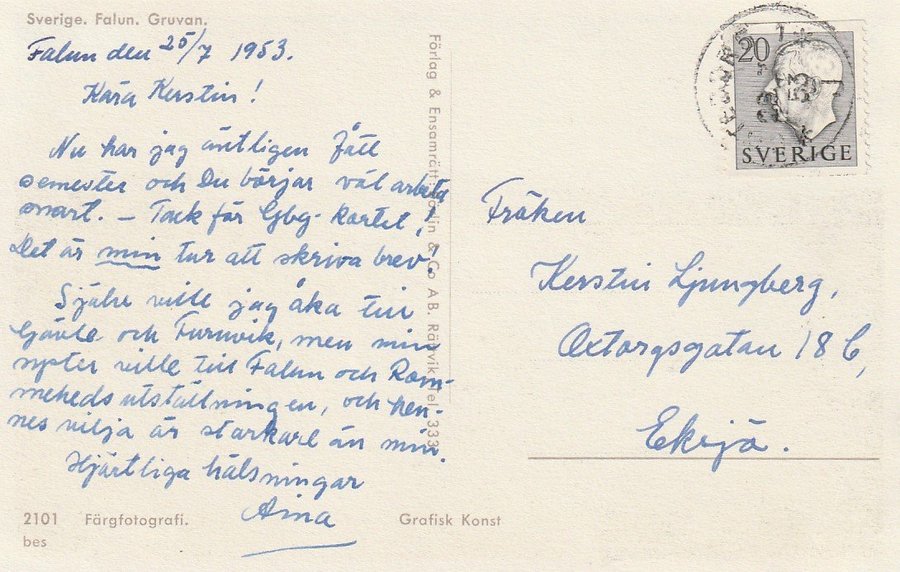 Sverige. Falun. Gruvan.
Falun den 25/7 1953.
Kära Kerstin!
Nu har jag äntligen fått
semester och Du börjar väl arbeta
snart. – Tack för Gbg-kortet!
Det är min tur att skriva brev!
Själv ville jag åka till
Gävle och Furuvik, men min
syster ville till Falun och Rom-
mehedsutställningen, och hen-
nes vilja är starkare än min.
Hjärtliga hälsningar
Aina
2101 Färgfotografi.
bes
Grafisk Konst
Förlag & Ensamrätt & Co A B. Rättvik Tel 333
20
SVERIGE
Fröken
Kerstin Ljungberg,
Oxtorgsgatan 18 C,
Eksjö.